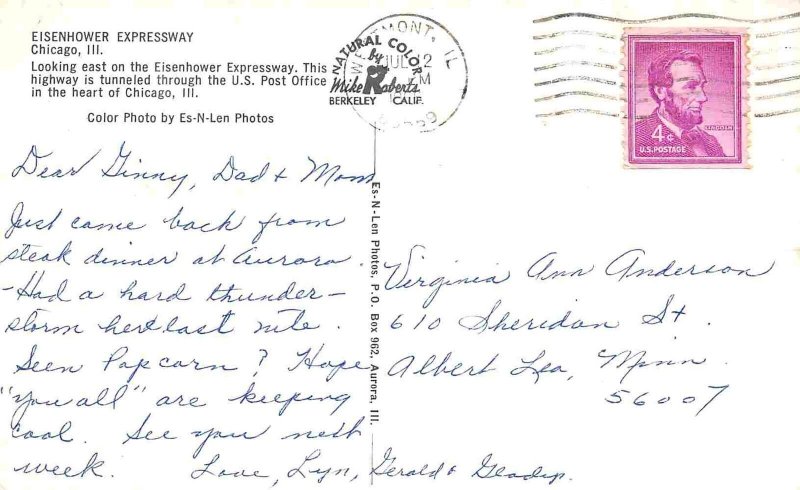 EISENHOWER EXPRESSWAY
Chicago, Ill.
Looking east on the Eisenhower Expressway. This
highway is tunneled through the U.S. Post Office
in the heart of Chicago, Ill.
Color Photo by Es-N-Len Photos
NATURAL COLOR
by
Mike Roberts
BERKELEY CALIF.
MONT, IL
JUL 2
4¢
LINCOLN
U.S. POSTAGE
Dear Ginny, Dad & Mom
Just came back from
steak dinner at Aurora.
-Had a hard thunder-
storm here last nite.
Seen Popcorn? Hope
"you all" are keeping
cool. See you next
week. Love, Lyn, Gerald & Gladys.
Es-N-Len Photos, P.O. Box 962, Aurora, Ill.
Virginia Ann Anderson
610 Sheridan St.
Albert Lea, Minn.
56007